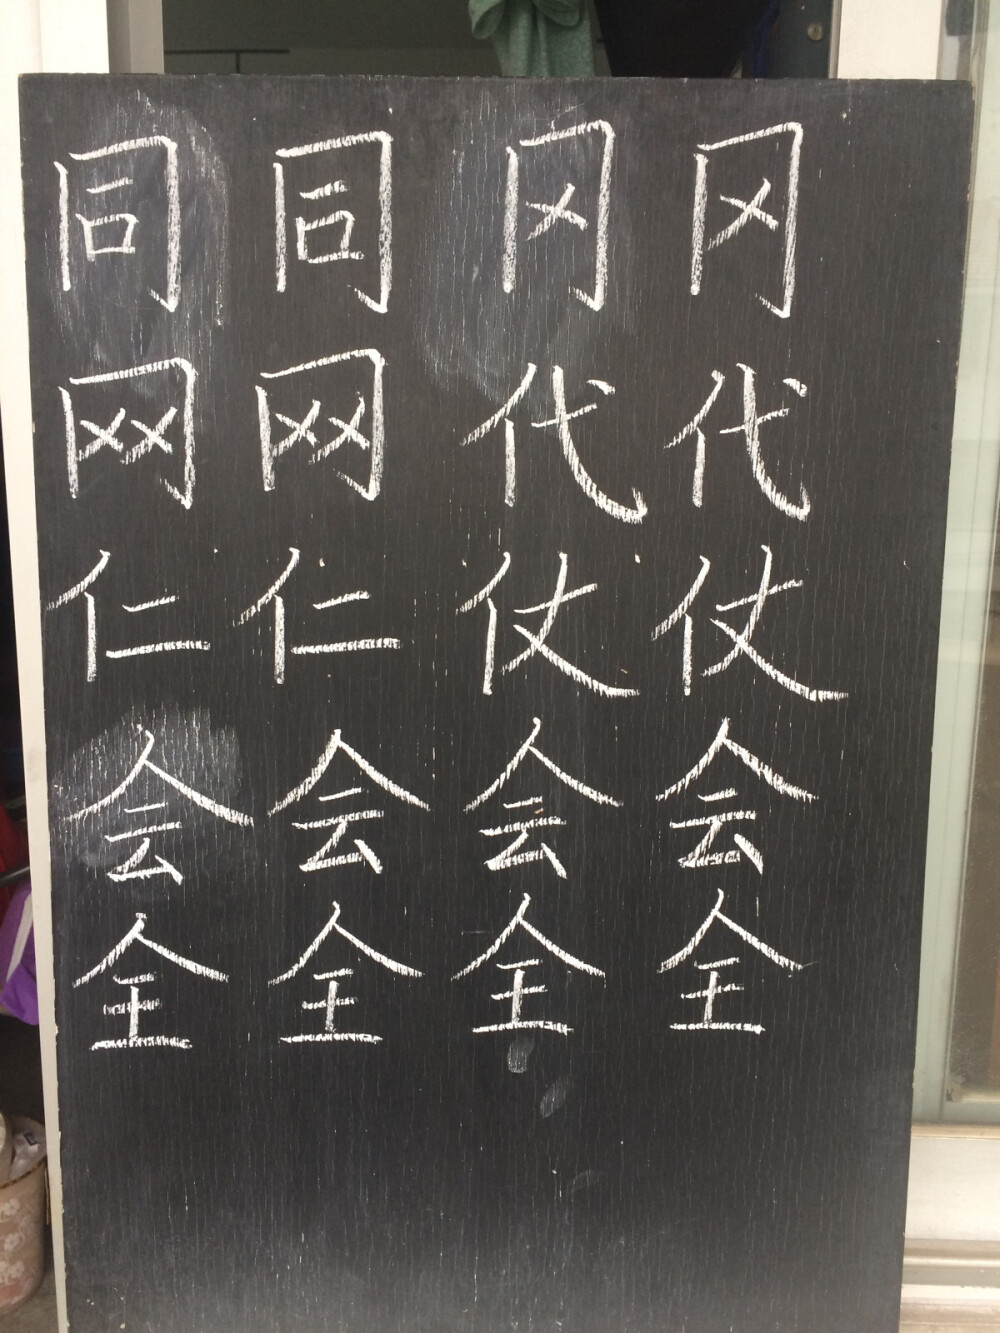 同同冈冈
网网代代
仁仁仗仗
会会会会
全全全全